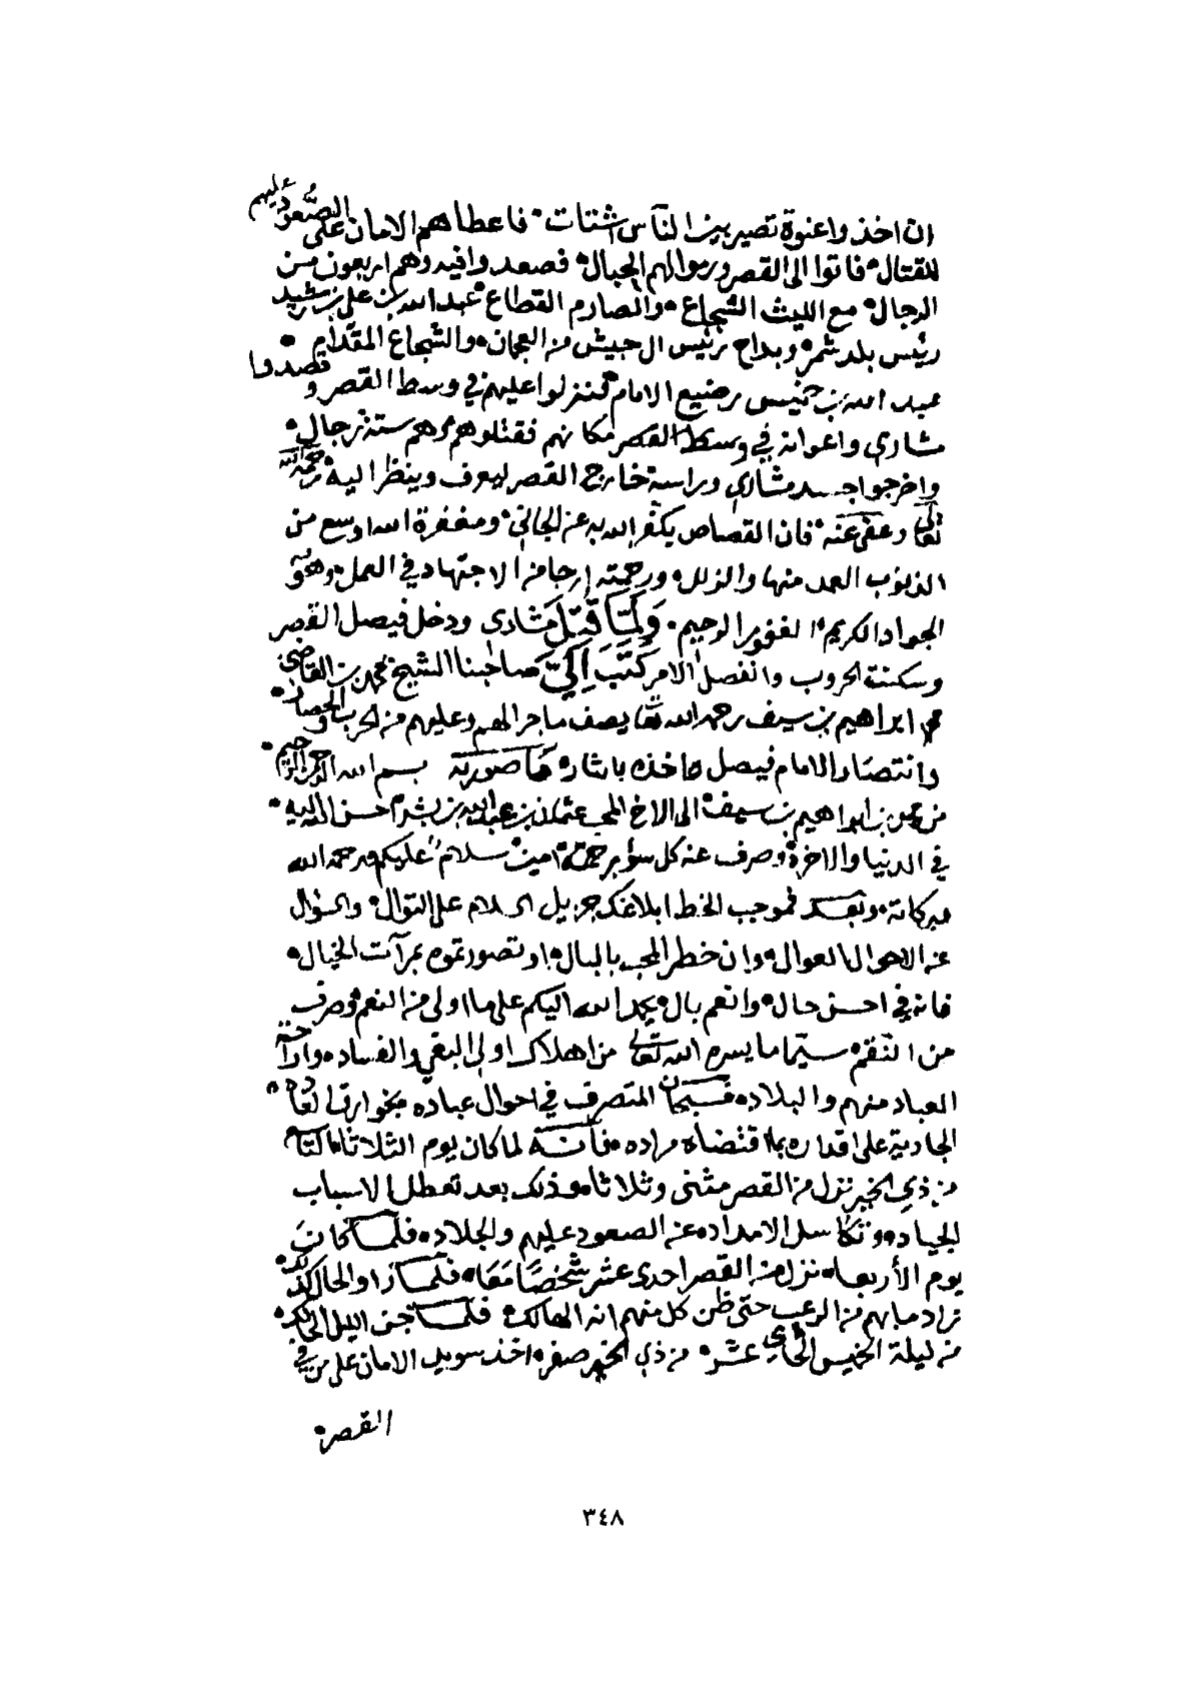 ان اخذوا عنوة تصير بين الناس اشتات فاعطاهم الامان على الصعود عليهم
للقتال فاتوا الى القصر ورموا لهم الحبال فصعدوا فيه وهم اربعون من
الرجال مع الليث الشجاع والصارم القطاع عبد الله بن علي بن رشيد
رئيس بلد شمر وبداح رئيس ال حبيش من العجمان والشجاع المقدام
عبد الله بن خميس رضيع الامام فنزلوا عليهم في وسط القصر وقصدوا
مشاري واعوانه في وسط القصر مكانهم فقتلوهم وهم ستة رجال
واخرجوا جسد مشاري وراسه خارج القصر ليعرف وينظر اليه رحمه الله
تعالى وعفى عنه فان القصاص يكفر الله به عن الجاني ومغفرة الله اوسع من
الذنوب العمد منها والزلل ورحمته ارجا من الاجتهاد في العمل وهو
الجواد الكريم الغفور الرحيم ولما قتل مشاري ودخل فيصل القصر
وسكنت الحروب وانفصل الامر كتب الي صاحبنا الشيخ محمد بن القاضي
ابراهيم بن سيف رحمه الله تعالى يصف ما جرا لهم وعليهم من الحرب والحصار
وانتصار الامام فيصل واخذه بالثار ما صورته بسم الله الرحمن الرحيم
من محمد بن ابراهيم بن سيف الى الاخ المحب عثمان بن عبد الله بن بشر احسن الله اليه
في الدنيا والاخرة وصرف عنه كل سؤ برحمته امين سلام عليكم ورحمة الله
وبركاته وبعد فموجب الخط ابلاغك جزيل السلام على التوال والسؤال
عن الاحوال العوال وان خطر المحب بالبال او تصورتموه بمرآت الخيال
فانه في احسن حال وانعم بال يحمد الله اليكم على ما اولى من النعم وصرف
من النقم سيما ما يسره الله تعالى من اهلاك اولي البغي والفساد واراحة
العباد منهم والبلاد فسبحان المتصرف في احوال عباده بخوارق العاده
الجارية على اقداره بما اقتضاه مراده فانه لما كان يوم الثلاثا
من ذي الخير نزل من القصر مثنى وثلاثا وذلك بعد تعطل الاسباب
الجياد وتكاسل الامداد عن الصعود عليهم والجلاد فلما كان
يوم الأربعاء نزل من القصر احدى عشر شخصا معا فلما راوا الحال كذلك
زاد ما بهم من الرعب حتى ظن كل منهم انه الهالك فلما جن الليل الحالك
من ليلة الخميس الحادي عشر من ذي الخير صفر اخذ سويد الامان على من في
القصر
٣٤٨